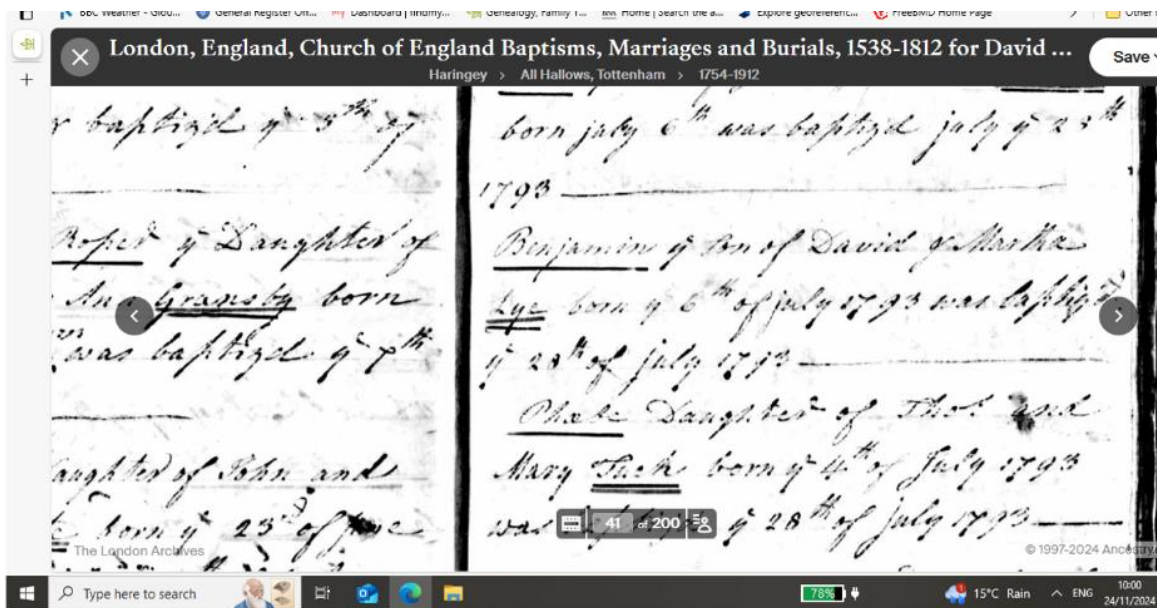 BBC Weather - Glou...
General Register On...
Dashboard | findmy...
Genealogy, Family T...
Home | Search the a...
Explore georeferenc...
FreeBMD Home Page
Other
London, England, Church of England Baptisms, Marriages and Burials, 1538-1812 for David ...
Save
Haringey > All Hallows, Tottenham > 1754-1912
baptizd yᵉ 5th of
Roper yᵉ Daughter of
Gransby born
was baptizd yᵉ 7th
aughter of John and
born yᵉ 23d of
born july 6th was baptizd july yᵉ 28th
1793
Benjamin yᵉ son of David & Martha
Lye born yᵉ 6th of july 1793 was baptizd
yᵉ 28th of july 1793
Phœbe Daughter of Thos and
Mary Tuck born yᵉ 4th of July 1793
was yᵉ 28th of july 1793
41 of 200
The London Archives
© 1997-2024 Ancestry
Type here to search
78%
15°C Rain
ENG
10:00
24/11/2024